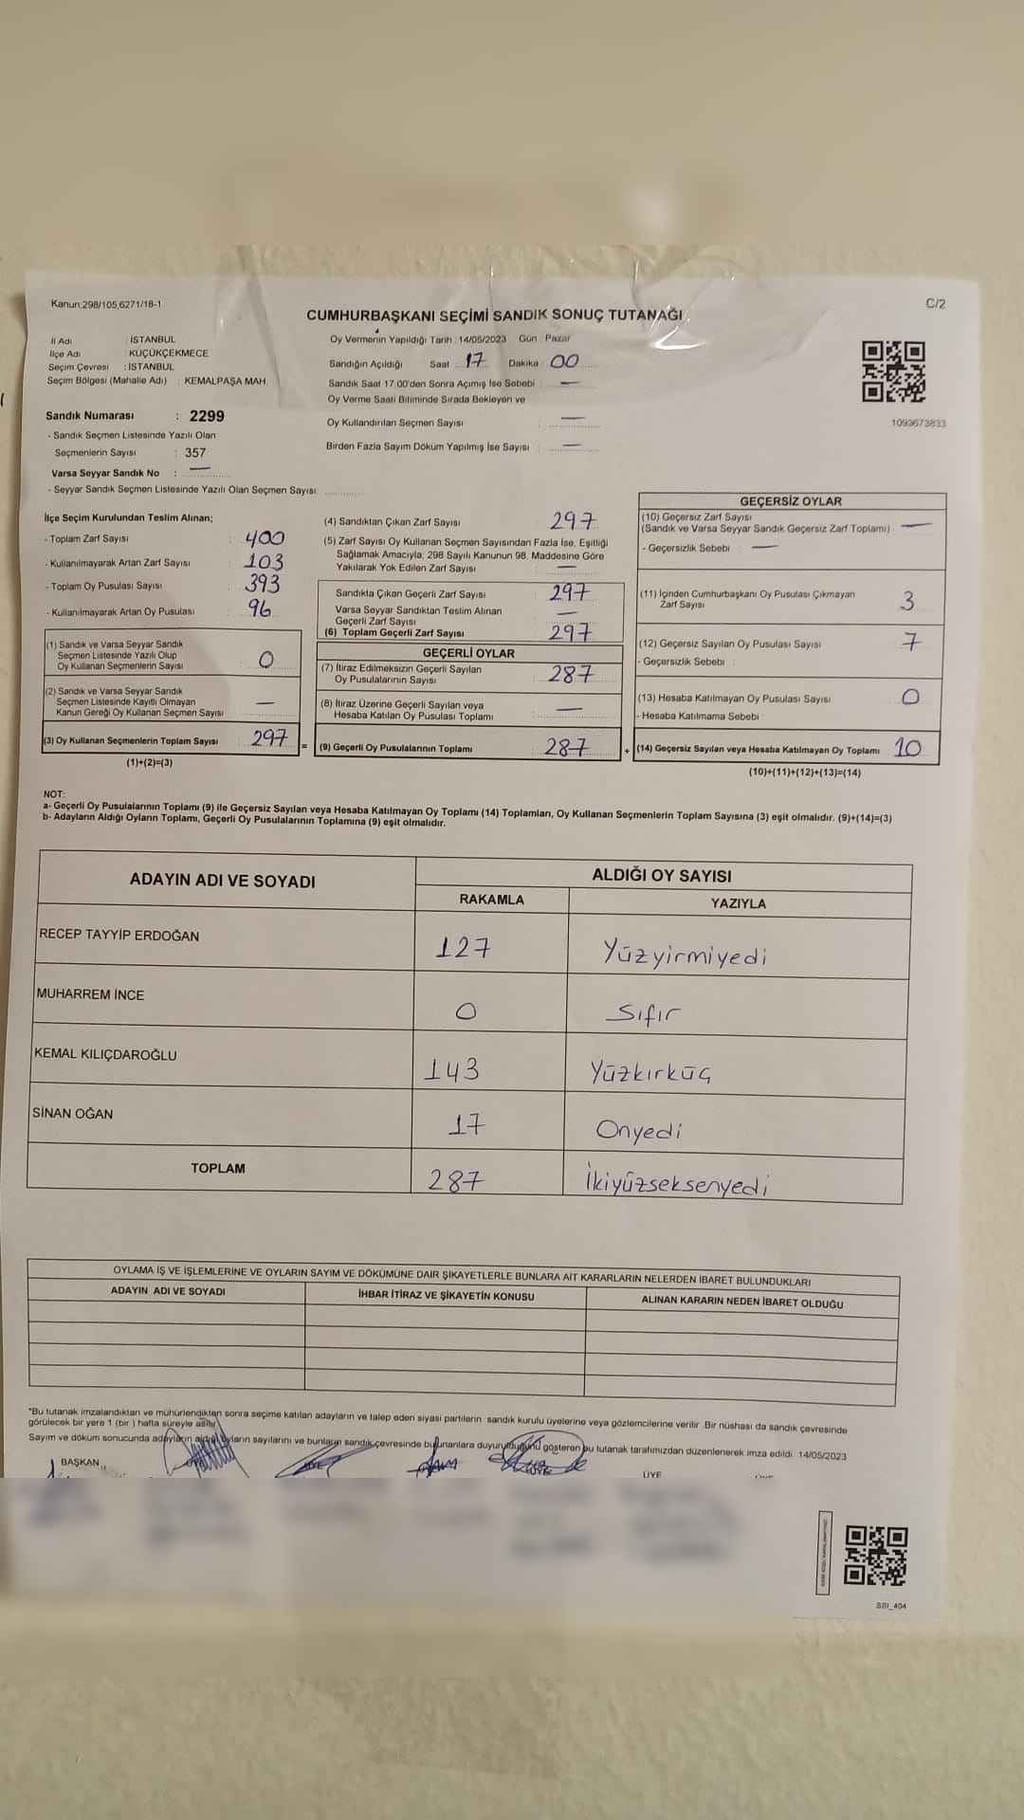 Kanun:298/105,6271/18-1
C/2
CUMHURBAŞKANI SEÇİMİ SANDIK SONUÇ TUTANAĞI
İl Adı : İSTANBUL
İlçe Adı : KÜÇÜKÇEKMECE
Seçim Çevresi : İSTANBUL
Seçim Bölgesi (Mahalle Adı) : KEMALPAŞA MAH.
Sandık Numarası : 2299
- Sandık Seçmen Listesinde Yazılı Olan
Seçmenlerin Sayısı : 357
Varsa Seyyar Sandık No : —
- Seyyar Sandık Seçmen Listesinde Yazılı Olan Seçmen Sayısı:
Oy Vermenin Yapıldığı Tarih : 14/05/2023 Gün : Pazar
Sandığın Açıldığı Saat 17 Dakika 00
Sandık Saat 17.00'den Sonra Açımış İse Sebebi —
Oy Verme Saati Bitiminde Sırada Bekleyen ve
Oy Kullandırılan Seçmen Sayısı : —
Birden Fazla Sayım Döküm Yapılmış İse Sayısı : —
1093673833
İlçe Seçim Kurulundan Teslim Alınan;
- Toplam Zarf Sayısı : 400
- Kullanılmayarak Artan Zarf Sayısı : 103
- Toplam Oy Pusulası Sayısı : 393
- Kullanılmayarak Artan Oy Pusulası : 96
(1) Sandık ve Varsa Seyyar Sandık
Seçmen Listesinde Yazılı Olup
Oy Kullanan Seçmenlerin Sayısı 0
(2) Sandık ve Varsa Seyyar Sandık
Seçmen Listesinde Kayıtlı Olmayan
Kanun Gereği Oy Kullanan Seçmen Sayısı —
(3) Oy Kullanan Seçmenlerin Toplam Sayısı 297
(1)+(2)=(3)
(4) Sandıktan Çıkan Zarf Sayısı 297
(5) Zarf Sayısı Oy Kullanan Seçmen Sayısından Fazla İse, Eşitliği
Sağlamak Amacıyla; 298 Sayılı Kanunun 98. Maddesine Göre
Yakılarak Yok Edilen Zarf Sayısı —
Sandıkta Çıkan Geçerli Zarf Sayısı 297
Varsa Seyyar Sandıktan Teslim Alınan
Geçerli Zarf Sayısı —
(6) Toplam Geçerli Zarf Sayısı 297
GEÇERLİ OYLAR
(7) İtiraz Edilmeksizin Geçerli Sayılan
Oy Pusulalarının Sayısı 287
(8) İtiraz Üzerine Geçerli Sayılan veya
Hesaba Katılan Oy Pusulası Toplamı —
= (9) Geçerli Oy Pusulalarının Toplamı 287
GEÇERSİZ OYLAR
(10) Geçersiz Zarf Sayısı
(Sandık ve Varsa Seyyar Sandık Geçersiz Zarf Toplamı) —
- Geçersizlik Sebebi : —
(11) İçinden Cumhurbaşkanı Oy Pusulası Çıkmayan
Zarf Sayısı 3
(12) Geçersiz Sayılan Oy Pusulası Sayısı 7
- Geçersizlik Sebebi :
(13) Hesaba Katılmayan Oy Pusulası Sayısı 0
- Hesaba Katılmama Sebebi :
+ (14) Geçersiz Sayılan veya Hesaba Katılmayan Oy Toplamı 10
(10)+(11)+(12)+(13)=(14)
NOT:
a- Geçerli Oy Pusulalarının Toplamı (9) ile Geçersiz Sayılan veya Hesaba Katılmayan Oy Toplamı (14) Toplamları, Oy Kullanan Seçmenlerin Toplam Sayısına (3) eşit olmalıdır. (9)+(14)=(3)
b- Adayların Aldığı Oyların Toplamı, Geçerli Oy Pusulalarının Toplamına (9) eşit olmalıdır.
ADAYIN ADI VE SOYADI ALDIĞI OY SAYISI
RAKAMLA YAZIYLA
RECEP TAYYİP ERDOĞAN 127 Yüzyirmiyedi
MUHARREM İNCE 0 Sıfır
KEMAL KILIÇDAROĞLU 143 Yüzkırküç
SİNAN OĞAN 17 Onyedi
TOPLAM 287 İkiyüzseksenyedi
OYLAMA İŞ VE İŞLEMLERİNE VE OYLARIN SAYIM VE DÖKÜMÜNE DAİR ŞİKAYETLERLE BUNLARA AİT KARARLARIN NELERDEN İBARET BULUNDUKLARI
ADAYIN ADI VE SOYADI İHBAR İTİRAZ VE ŞİKAYETİN KONUSU ALINAN KARARIN NEDEN İBARET OLDUĞU
*Bu tutanak imzalandıktan ve mühürlendikten sonra seçime katılan adayların ve talep eden siyasi partilerin sandık kurulu üyelerine veya gözlemcilerine verilir. Bir nüshası da sandık çevresinde
görülecek bir yere 1 (bir ) hafta süreyle asılır.
Sayım ve döküm sonucunda adayların aldığı oyların sayılarını ve bunların sandık çevresinde bulunanlara duyurulduğunu gösteren bu tutanak tarafımızdan düzenlenerek imza edildi. 14/05/2023
BAŞKAN
ÜYE
SBI_404